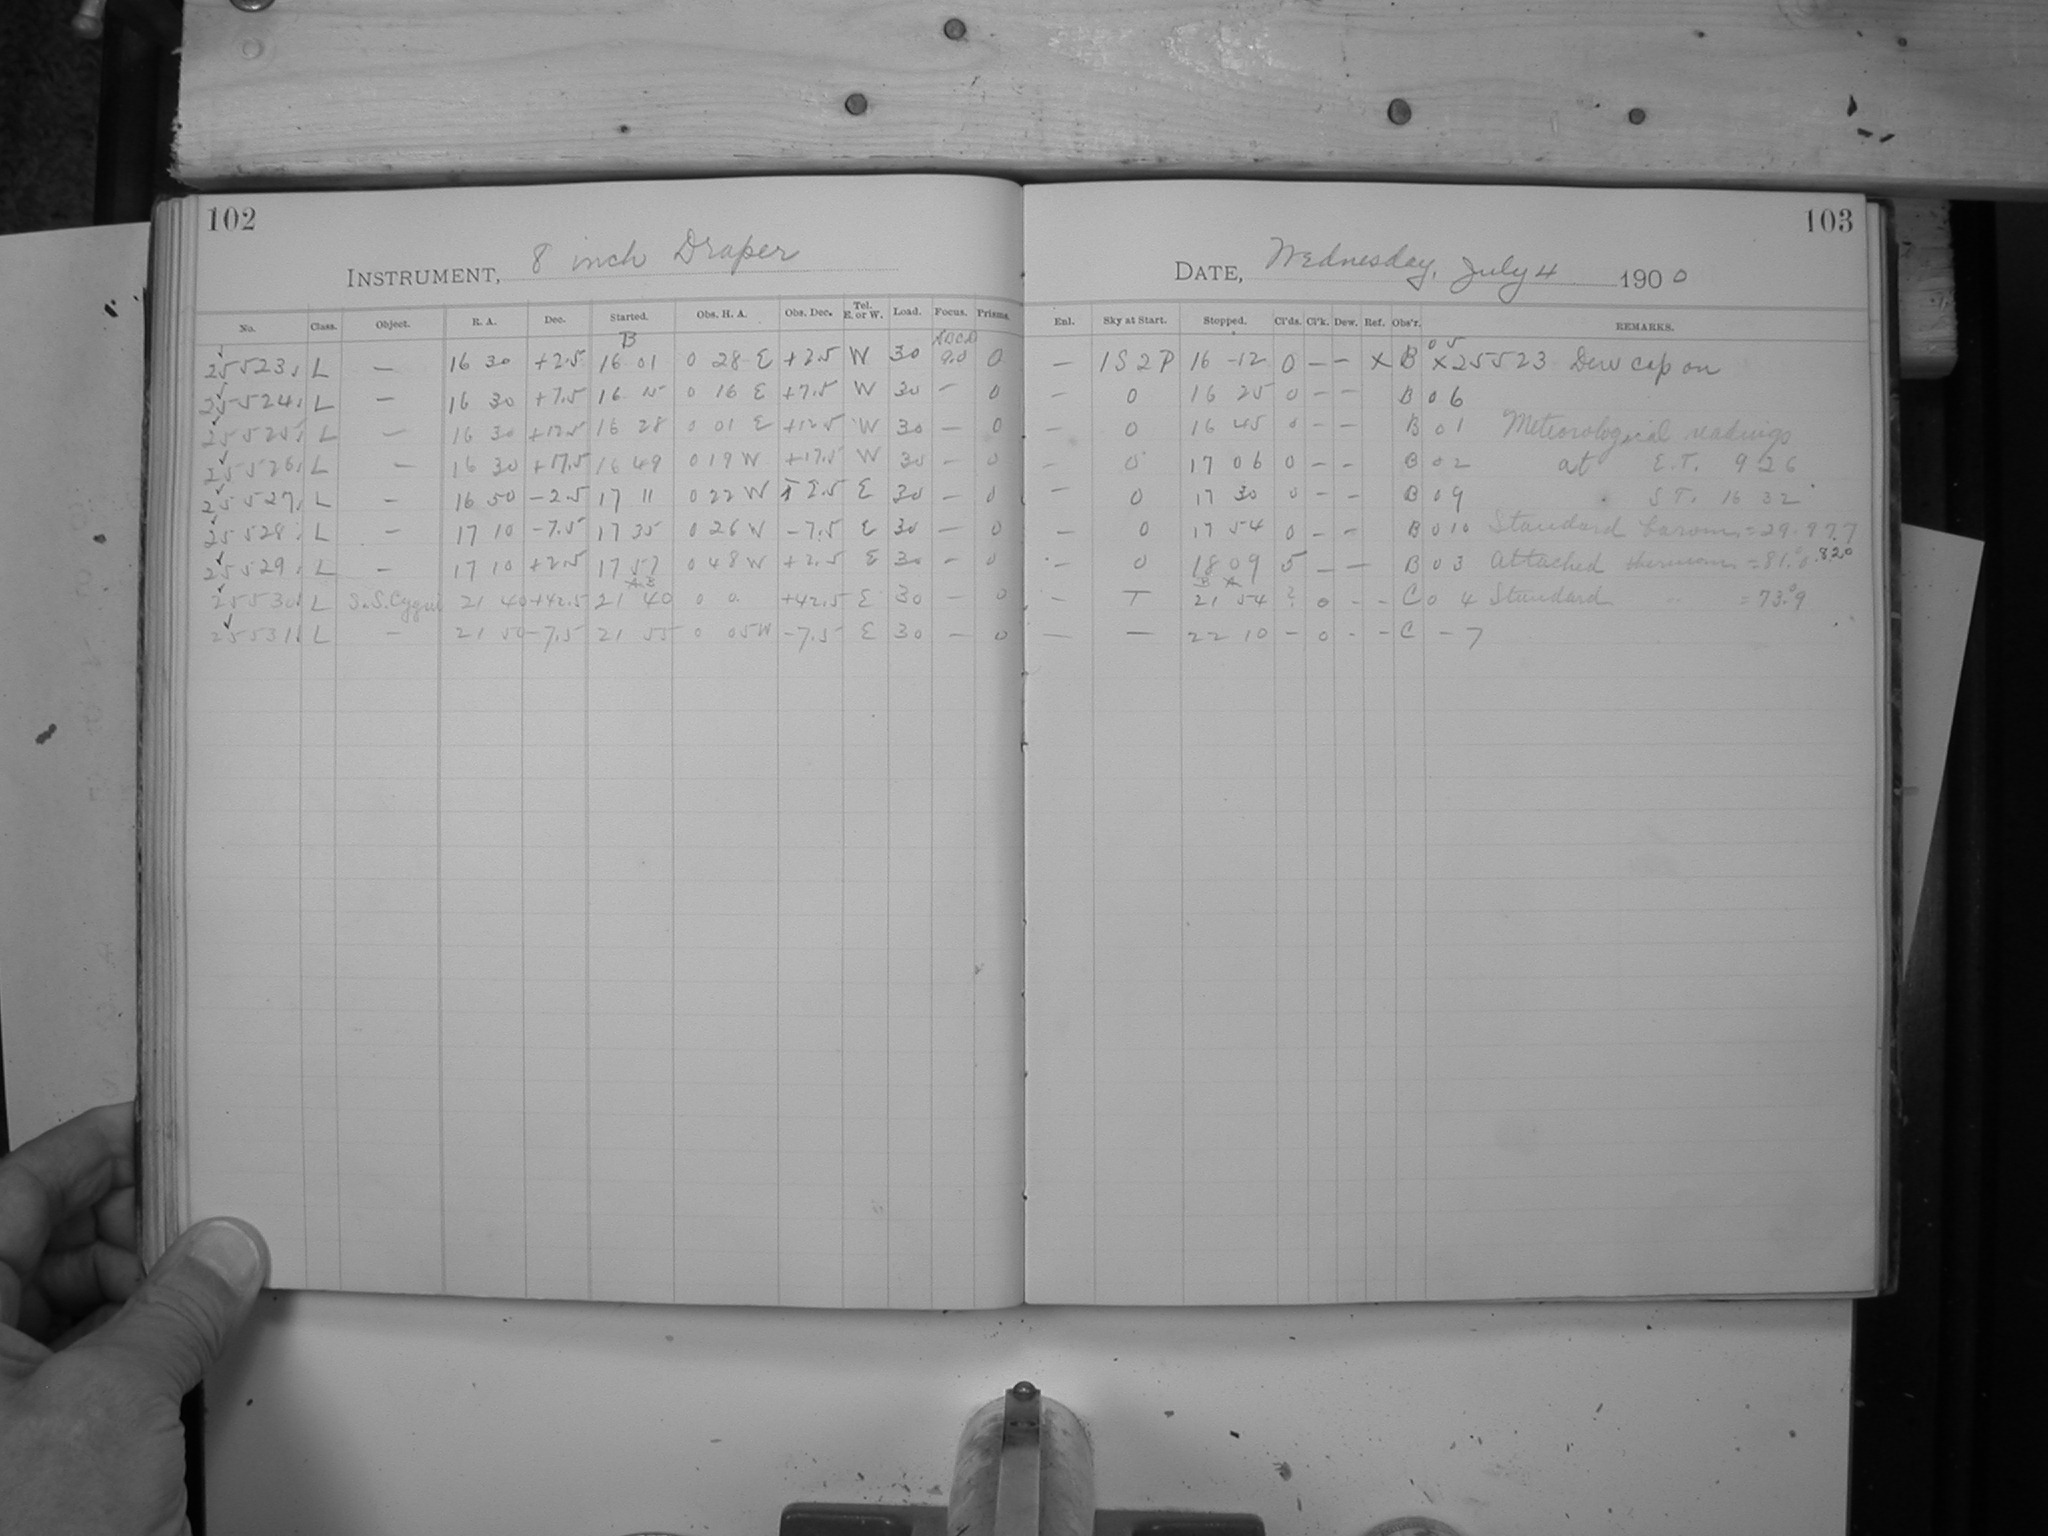 102
INSTRUMENT, 8 inch Draper
No. Class. Object. R. A. Dec. Started. Obs. H. A. Obs. Dec. Tel. E. or W. Load. Focus. Prisms.
B ABCD
25523 L — 16 30 +2.5 16 01 0 28 E +2.5 W 30 9.0 0
25524 L — 16 30 +7.5 16 15 0 16 E +7.5 W 30 — 0
25525 L — 16 30 +12.5 16 28 0 01 E +12.5 W 30 — 0
25526 L — 16 30 +17.5 16 49 0 19 W +17.5 W 30 — 0
25527 L — 16 50 -2.5 17 11 0 22 W 2.5 E 30 — 0
25528 L — 17 10 -7.5 17 35 0 26 W -7.5 E 30 — 0
25529 L — 17 10 +2.5 17 57 0 48 W +2.5 E 30 — 0
25530 L S.S. Cygni 21 40 +42.5 21 40 0 0 +42.5 E 30 — 0
25531 L — 21 50 -7.5 21 55 0 05 W -7.5 E 30 — 0
103
DATE, Wednesday, July 4 1900
Enl. Sky at Start. Stopped. Cl'ds. Cl'k. Dew. Ref. Obs'r. REMARKS.
— 1S2P 16 12 0 — — X B 05 X25523 Dew cap on
— 0 16 25 0 — — B 06
— 0 16 45 0 — — B 01 Meteorological readings
— 0 17 06 0 — — B 02 at E.T. 9 26
— 0 17 30 0 — — B 09 S.T. 16 32
— 0 17 54 0 — — B 010 Standard barom = 29.977
— 0 18 09 5 — — B 03 Attached thermom = 81.0 .820
— T 21 54 ? 0 - - C 0 4 Standard " = 73.9
— — 22 10 - 0 - - C - 7